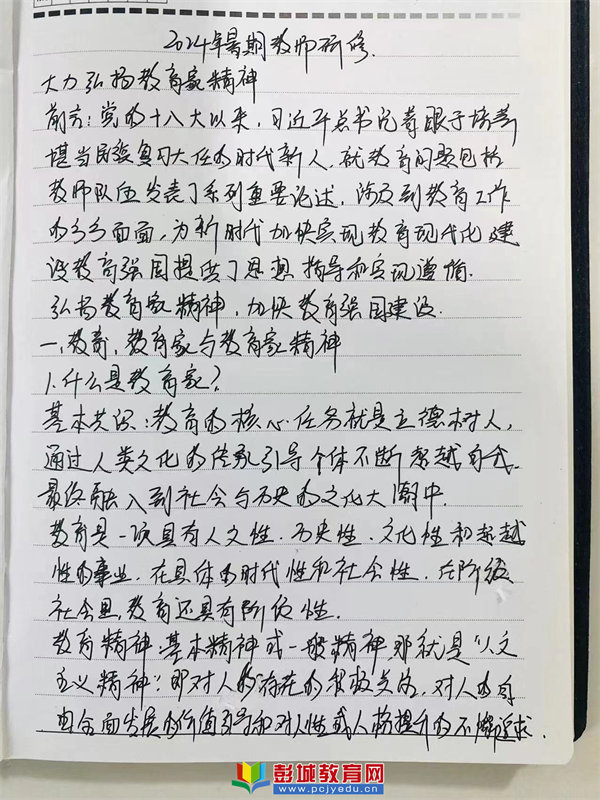 2024年暑期教师研修.
大力弘扬教育家精神
前言:党的十八大以来,习近平总书记着眼于培养
堪当民族复兴大任的时代新人,就教育问题包括
教师队伍发表了系列重要论述,涉及到教育工作
的方方面面,为新时代加快实现教育现代化建
设教育强国提供了思想指导和实现遵循.
弘扬教育家精神,加快教育强国建设.
一,教育,教育家与教育家精神
1.什么是教育家?
基本共识:教育的核心任务就是立德树人,
通过人类文化的传承引导个体不断超越自我
最终融入到社会与历史的文化大潮中.
教育是一项具有人文性.历史性.文化性和超越
性的事业.在具体的时代性和社会性.在阶级
社会里,教育还具有阶级性.
教育精神:基本精神或一般精神,那就是"人文
主义精神":即对人的存在的积极关怀,对人的自
由全面发展的价值引导和对人性或人格提升的不懈追求.
彭城教育网
www.pcjyedu.cn